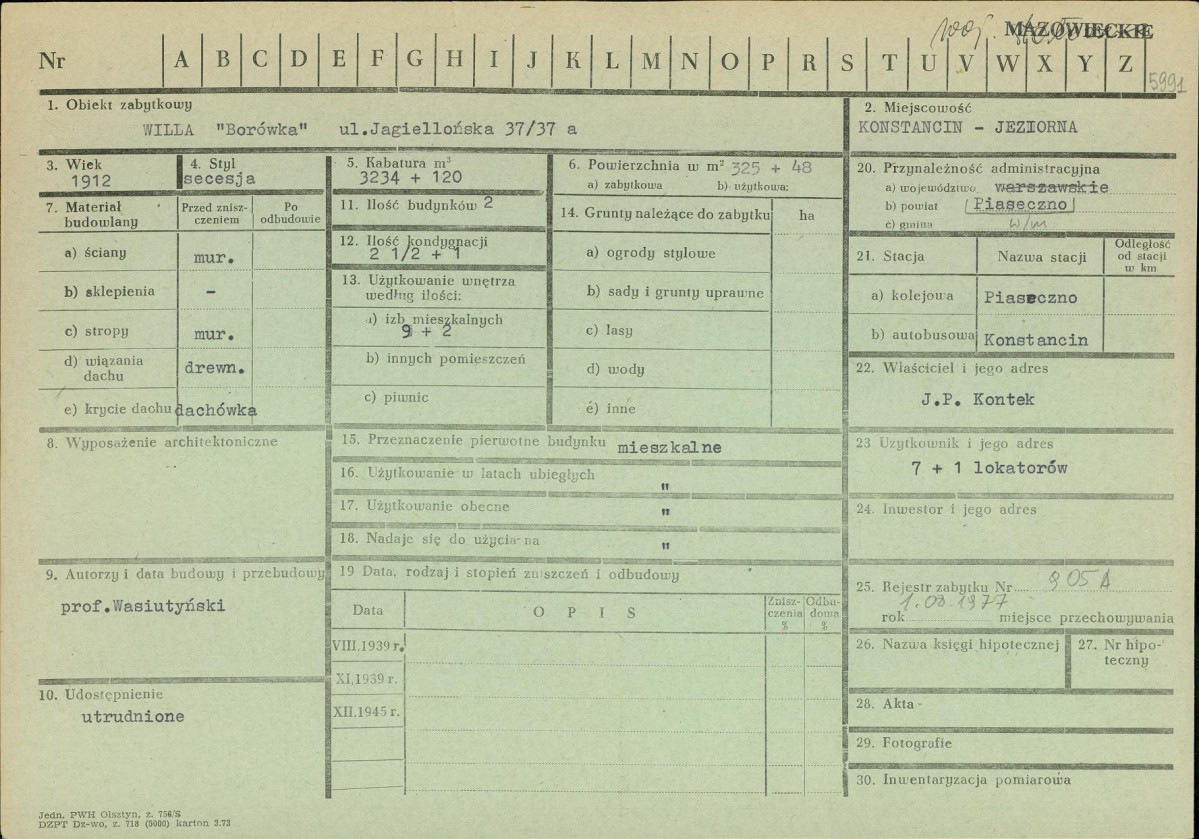 MAZOWIECKIE
Nr A B C D E F G H I J K L M N O P R S T U V W X Y Z
5991
1. Obiekt zabytkowy
WILLA "Borówka" ul.Jagiellońska 37/37 a
2. Miejscowość
KONSTANCIN - JEZIORNA
3. Wiek
1912
4. Styl
secesja
5. Kabatura m³
3234 + 120
6. Powierzchnia w m² 325 + 48
a) zabytkowa b) użytkowa:
20. Przynależność administracyjna
a) województwo warszawskie
b) powiat Piaseczno
c) gmina w/m
7. Materiał budowlany
Przed znisz-
czeniem
Po
odbudowie
a) ściany mur.
b) sklepienia -
c) stropy mur.
d) wiązania
dachu drewn.
e) krycie dachu dachówka
11. Ilość budynków 2
12. Ilość kondygnacji
2 1/2 + 1
13. Użytkowanie wnętrza
według ilości:
a) izb mieszkalnych
9 + 2
b) innych pomieszczeń
c) piwnic
14. Grunty należące do zabytku ha
a) ogrody stylowe
b) sady i grunty uprawne
c) lasy
d) wody
e) inne
21. Stacja Nazwa stacji
Odległość
od stacji
w km
a) kolejowa Piaseczno
b) autobusowa Konstancin
22. Właściciel i jego adres
J.P. Kontek
8. Wyposażenie architektoniczne
15. Przeznaczenie pierwotne budynku mieszkalne
16. Użytkowanie w latach ubiegłych "
17. Użytkowanie obecne "
18. Nadaje się do użycia na "
23 Użytkownik i jego adres
7 + 1 lokatorów
24. Inwestor i jego adres
9. Autorzy i data budowy i przebudowy
prof.Wasiutyński
10. Udostępnienie
utrudnione
19 Data, rodzaj i stopień zniszczeń i odbudowy
Data O P I S
Znisz-
czenia
%
Odbu-
dowa
%
VIII.1939 r.
XI.1939 r.
XII.1945 r.
25. Rejestr zabytku Nr 905 A
1.08.1977
rok miejsce przechowywania
26. Nazwa księgi hipotecznej
27. Nr hipo-
teczny
28. Akta
29. Fotografie
30. Inwentaryzacja pomiarowa
Jedn. PWH Olsztyn, z. 756/S
DZPT Dz-wo, z. 718 (5000) karton 3.73